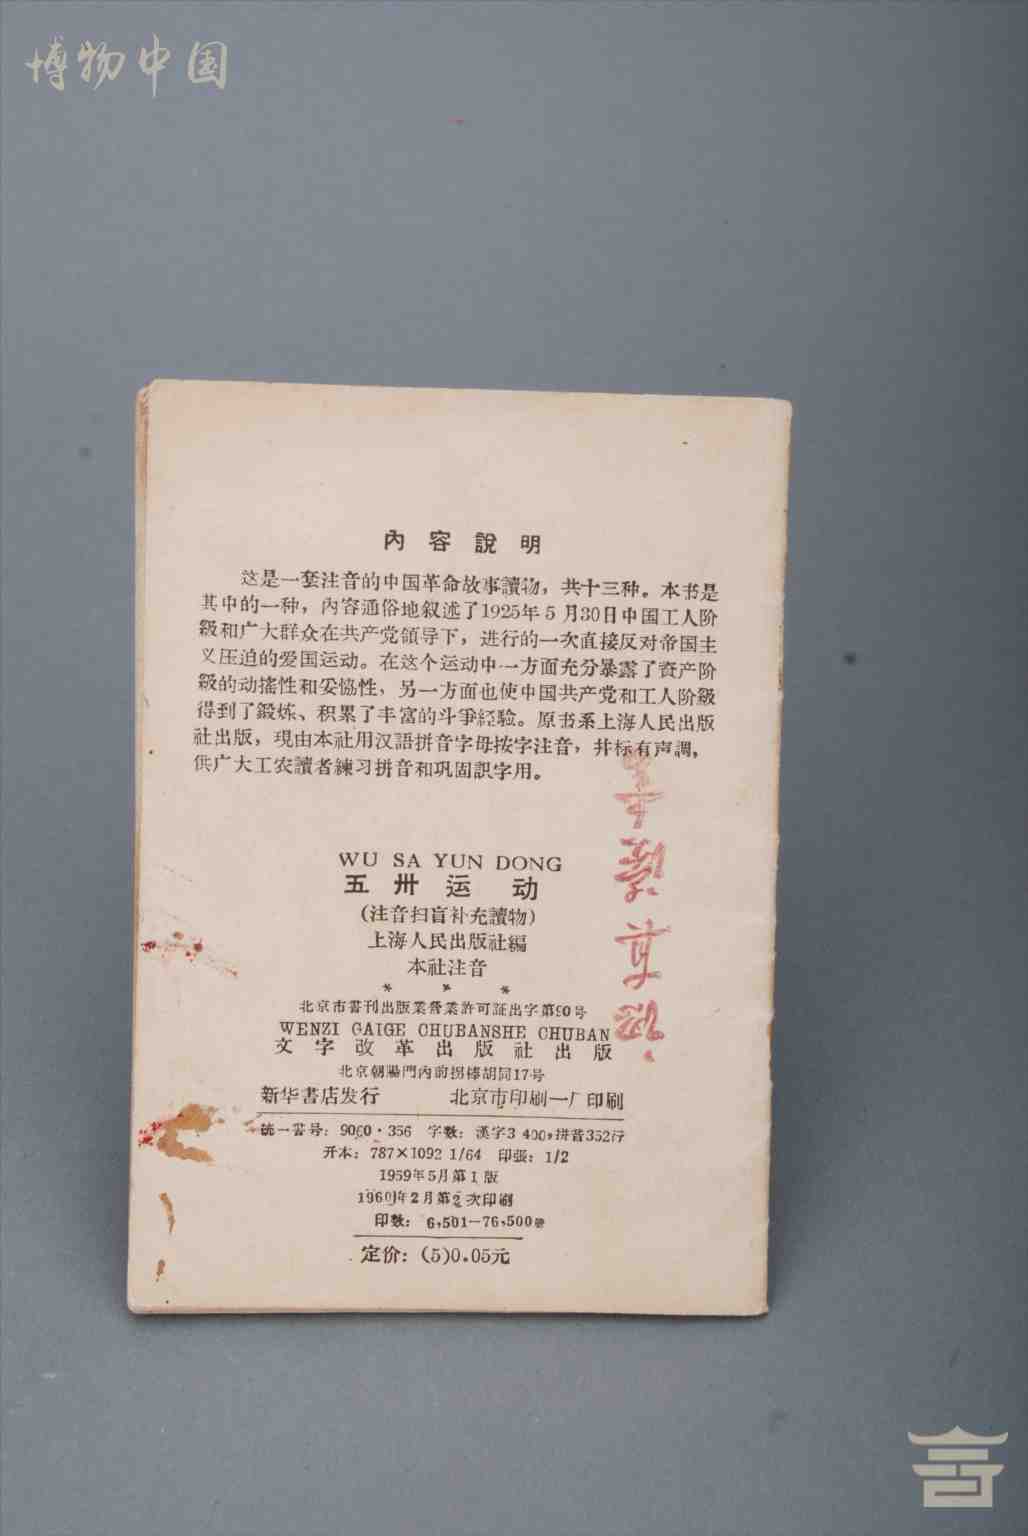 博物中国
內容說明
这是一套注音的中国革命故事讀物，共十三种。本书是
其中的一种，內容通俗地叙述了1925年5月30日中国工人阶
級和广大群众在共产党領导下，进行的一次直接反对帝国主
义压迫的爱国运动。在这个运动中一方面充分暴露了資产阶
級的动搖性和妥协性，另一方面也使中国共产党和工人阶級
得到了鍛炼、积累了丰富的斗爭經驗。原书系上海人民出版
社出版，現由本社用汉語拼音字母按字注音，幷标有声調，
供广大工农讀者練习拼音和巩固識字用。
WU SA YUN DONG
五卅运动
(注音扫盲补充讀物)
上海人民出版社編
本社注音
* * *
北京市書刊出版業營業許可証出字第90号
WENZI GAIGE CHUBANSHE CHUBAN
文字改革出版社出版
北京朝陽門內前拐棒胡同17号
新华書店发行 北京市印刷一厂印刷
統一書号：9060·356 字数：漢字3 400，拼音352行
开本：787×1092 1/64 印張：1/2
1959年5月第1版
1960年2月第2次印刷
印数：6,501—76,500冊
定价：(5)0.05元